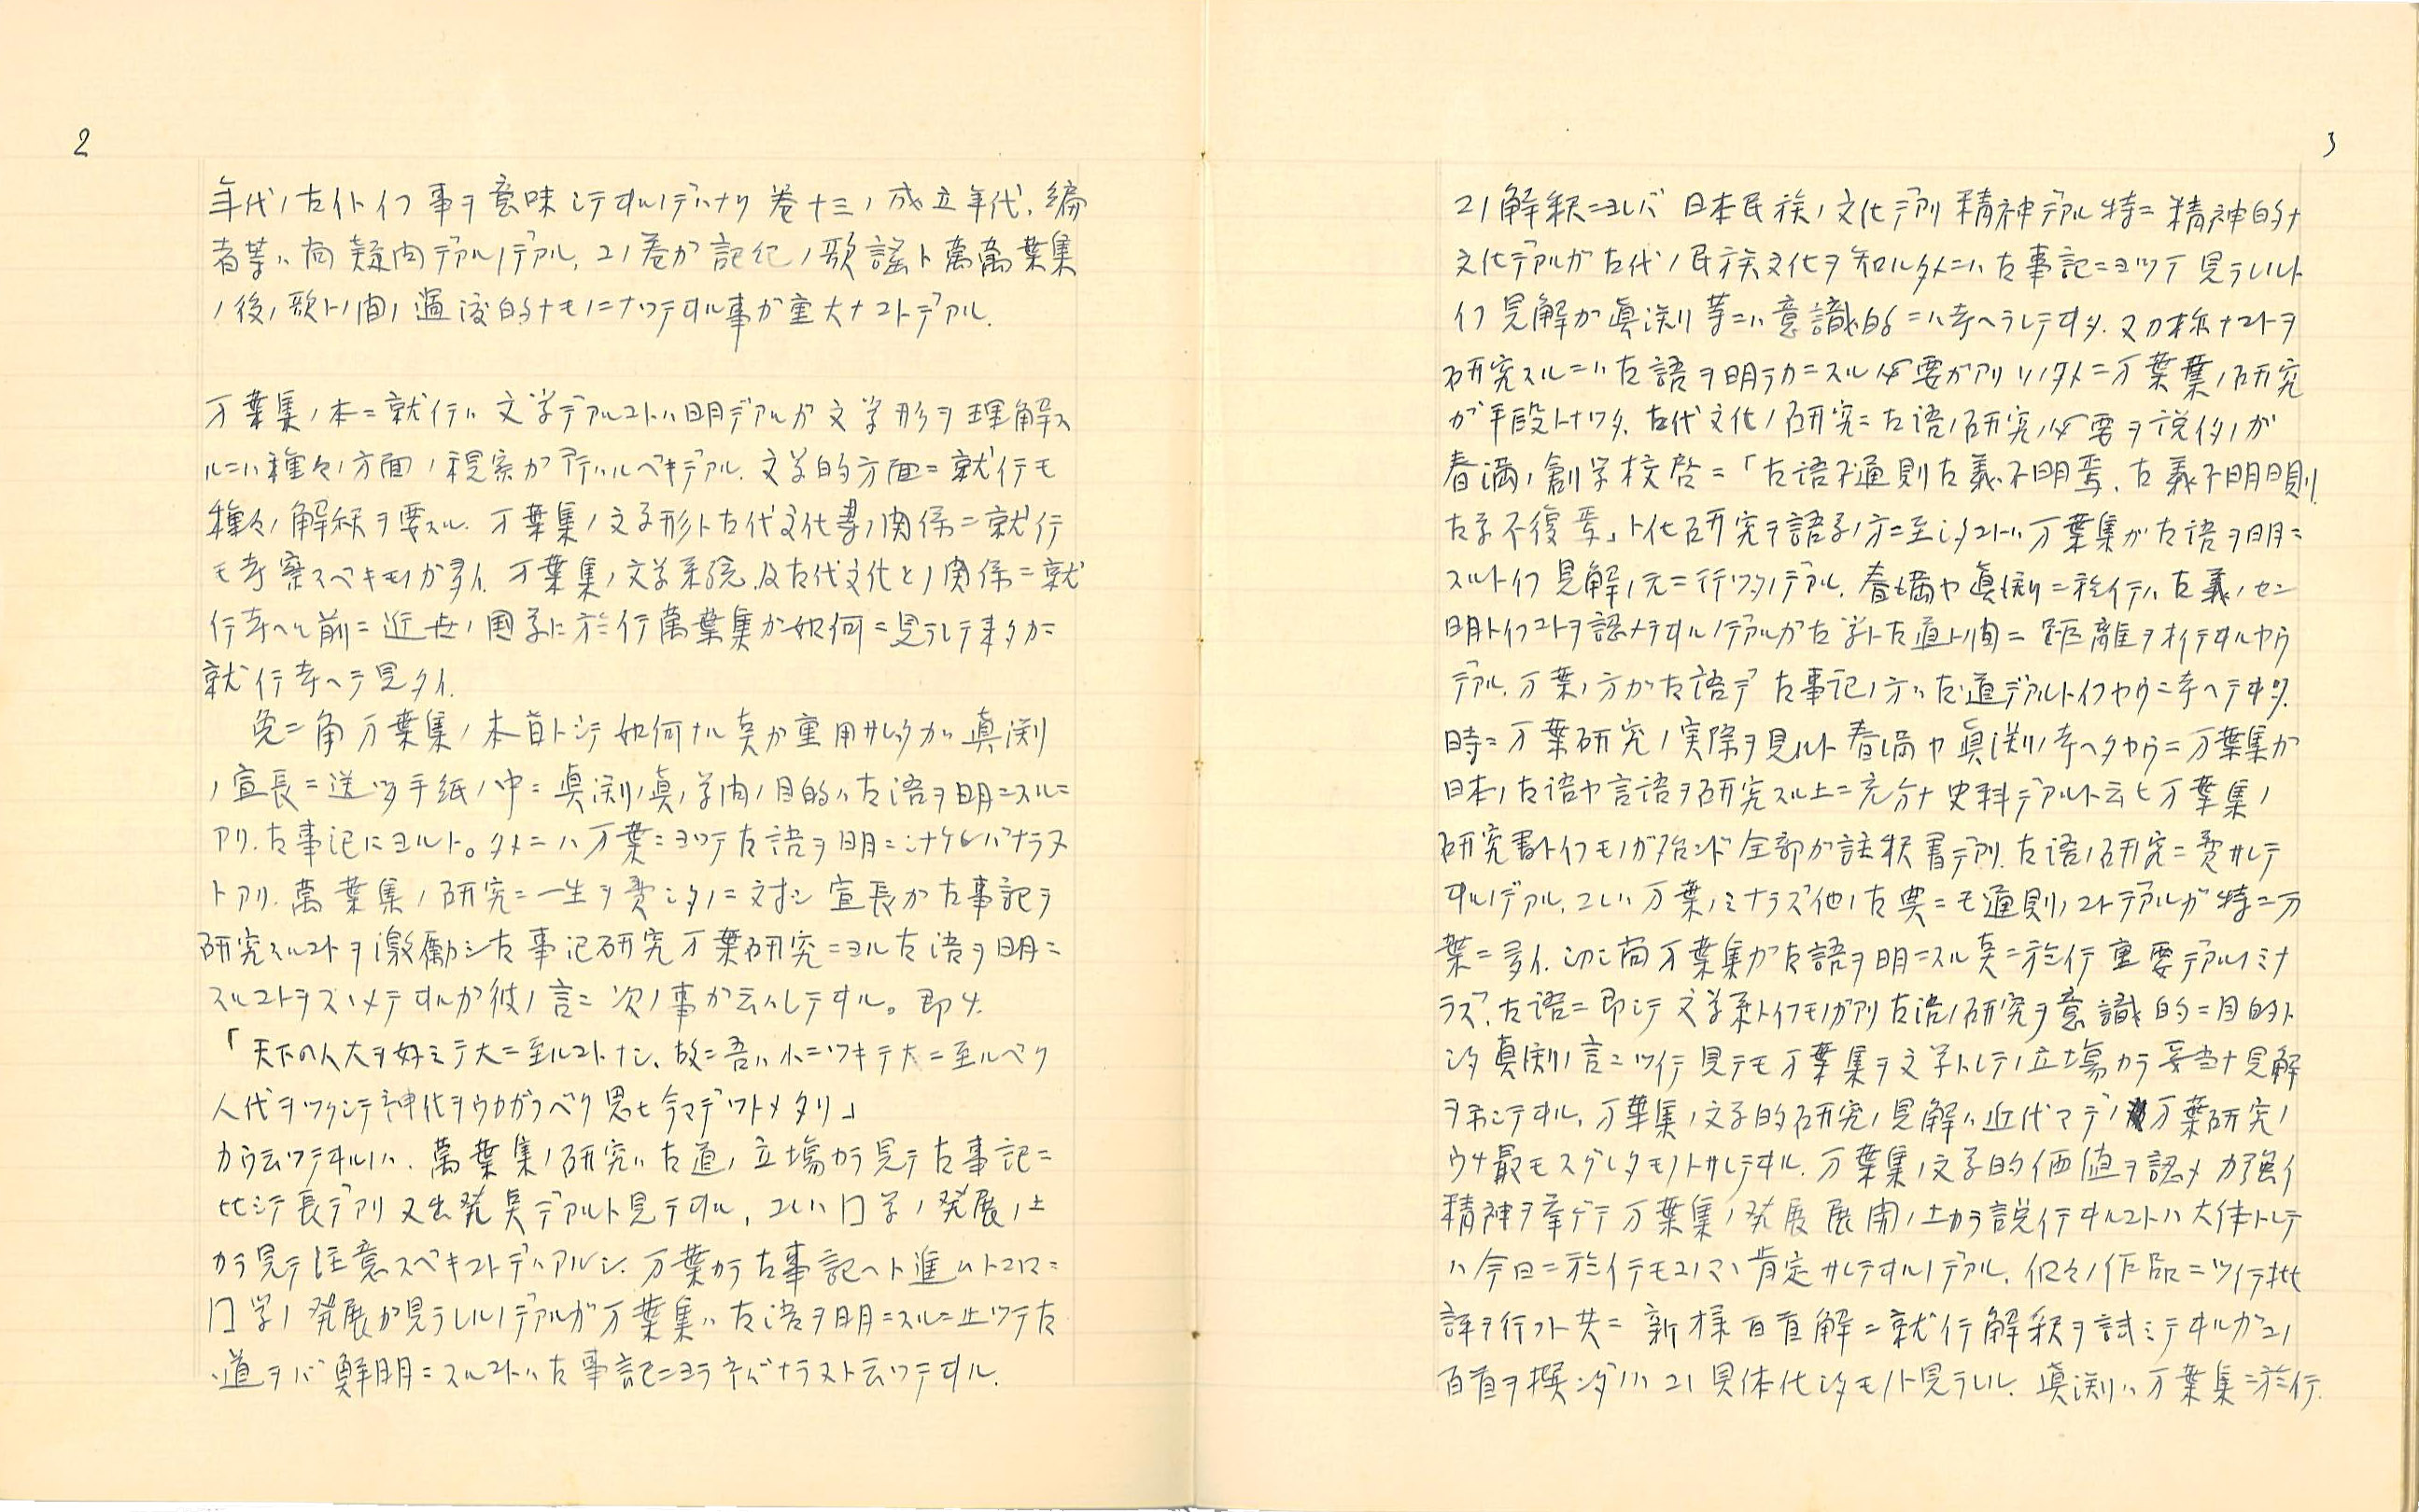 2
年代ノ古イトイフ事ヲ意味シテヰルノデハナク 巻十三ノ成立年代、編
者等ハ尚疑問デアルノデアル、コノ巻ガ記紀ノ歌謡ト萬萬葉集
ノ後ノ歌トノ間ノ過渡的ナモノニナツテヰル事ガ重大ナコトデアル.
万葉集ノ本ニ就イテハ 文学デアルコトハ明デアルガ文学形ヲ理解ス
ルニハ種々ノ方面ノ視察ガアハルベキデアル. 文学的方面ニ就イテモ
種々ノ解釈ヲ要スル. 万葉集ノ文学形ト古代文化トノ関係ニ就イテ
モ考察スベキモノガ多イ. 万葉集ノ文学系統及古代文化とノ関係ニ就
イテ考ヘル前ニ近世ノ国学に於イテ萬葉集ガ如何ニ見ラレテ来タカニ
就イテ考ヘテ見タイ.
兎ニ角万葉集ノ本旨トシテ如何ナル点ガ重用サレタカハ真淵
ノ宣長ニ送ツタ手紙ノ中ニ真淵ノ真ノ学問ノ目的ハ古語ヲ明ニスルニ
アリ. 古事記にヨルト。タメニハ万葉ニヨツテ古語ヲ明ニシナケレバナラヌ
トアリ. 萬葉集ノ研究ニ一生ヲ費シタノニ対シ 宣長ガ古事記ヲ
研究スルコトヲ激励シ古事記研究万葉研究ニヨル古語ヲ明ニ
スルコトヲスヽメテヰルガ彼ノ言ニ次ノ事ガ云ハレテヰル。即チ
「天下の人大ヲ好ミテ大ニ至ルコトナシ、故ニ吾ハ小ニツキテ大ニ至ルベク
人代ヲツクシテ神代ヲウカガフベク思ヒ今マデツトメタリ」
カウ云ツテヰルノハ、萬葉集ノ研究ハ古道ノ立場カラ見テ古事記ニ
比シテ長デアリ又出発点デアルト見テヰル、コレハ同学ノ発展ノ上
カラ見テ注意スベキコトデハアルシ. 万葉カラ古事記ヘト進ムトコロニ
同学ノ発展ガ見ラレルノデアルガ万葉集ハ古語ヲ明ニスルニ止ツテ古
道ヲバ鮮明ニスルコトハ古事記ニヨラネバナラヌト云ツテヰル.
3
コノ解釈ニヨレバ 日本民族ノ文化デアリ精神デアル特ニ精神的ナ
文化デアルガ古代ノ民族文化ヲ知ルタメニハ古事記ニヨツテ見ラレルト
イフ見解ガ真淵等ニハ意識的ニハ考ヘラレテヰタ. 又カ様ナコトヲ
研究スルニハ古語ヲ明ラカニスル必要ガアリソノタメニ万葉葉ノ研究
ガ手段トナツタ. 古代文化ノ研究ニ古語ノ研究ノ必要ヲ説イタノガ
春満ノ創学校啓ニ「古語不通則古義不明焉、古義不明則
古学不復焉」ト化研究ヲ語学ノ方ニ至シタコトハ万葉集ガ古語ヲ明ニ
スルトイフ見解ノ元ニ行ツタノデアル. 春満ヤ真淵ニ於イテハ古義ノセン
明トイフコトヲ認メテヰルノデアルガ古学ト古道トノ間ニ距離ヲオイテヰルヤウ
デアル. 万葉ノ方ガ古語デ古事記ノ方ハ古道デアルトイフヤウニ考ヘテヰタ.
時ニ万葉研究ノ実際ヲ見ルト春満ヤ真淵ノ考ヘタヤウニ万葉集ガ
日本ノ古語ヤ言語ヲ研究スル上ニ充分ナ史料デアルト云ヒ万葉集ノ
研究書トイフモノガ殆ンド全部ガ註釈書デアリ. 古語ノ研究ニ費サレテ
ヰルノデアル、コレハ万葉ノミナラズ他ノ古典ニモ通則ノコトデアルガ特ニ万
葉ニ多イ. シカシ尚万葉集ガ古語ヲ明ニスル点ニ於イテ重要デアルノミナ
ラズ、古語ニ即シテ文学系トイフモノガアリ古語ノ研究ヲ意識的ニ目的ト
シタ真淵ノ言ニツイテ見テモ万葉集ヲ文学トシテノ立場カラ妥当ナ見解
ヲ示シテヰル. 万葉集ノ文学的研究ノ見解ハ近代マデノ万葉研究ノ
ウチ最モスグレタモノトサレテヰル. 万葉集ノ文学的価値ヲ認メ力強イ
精神ヲ挙ゲテ万葉集ノ発展展開ノ上カラ説イテヰルコトハ大体トシテ
ハ今日ニ於イテモコノマヽ肯定サレテヰルノデアル. 個々ノ作品ニツイテ批
評ヲ行フト共ニ 新様百首解ニ就イテ解釈ヲ試ミテヰルガコノ
百首ヲ撰ンダノハコノ具体化シタモノト見ラレル. 真淵ハ万葉集ニ於イテ